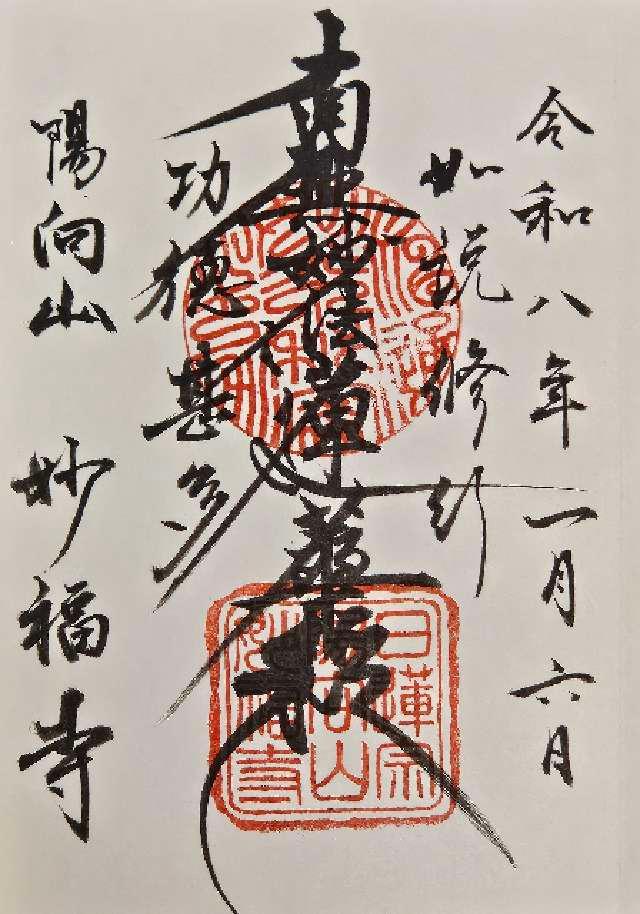 令和八年一月六日
如説修行
南無妙法蓮華経
功徳甚多
陽向山 妙福寺
日蓮宗
陽向山
妙福寺